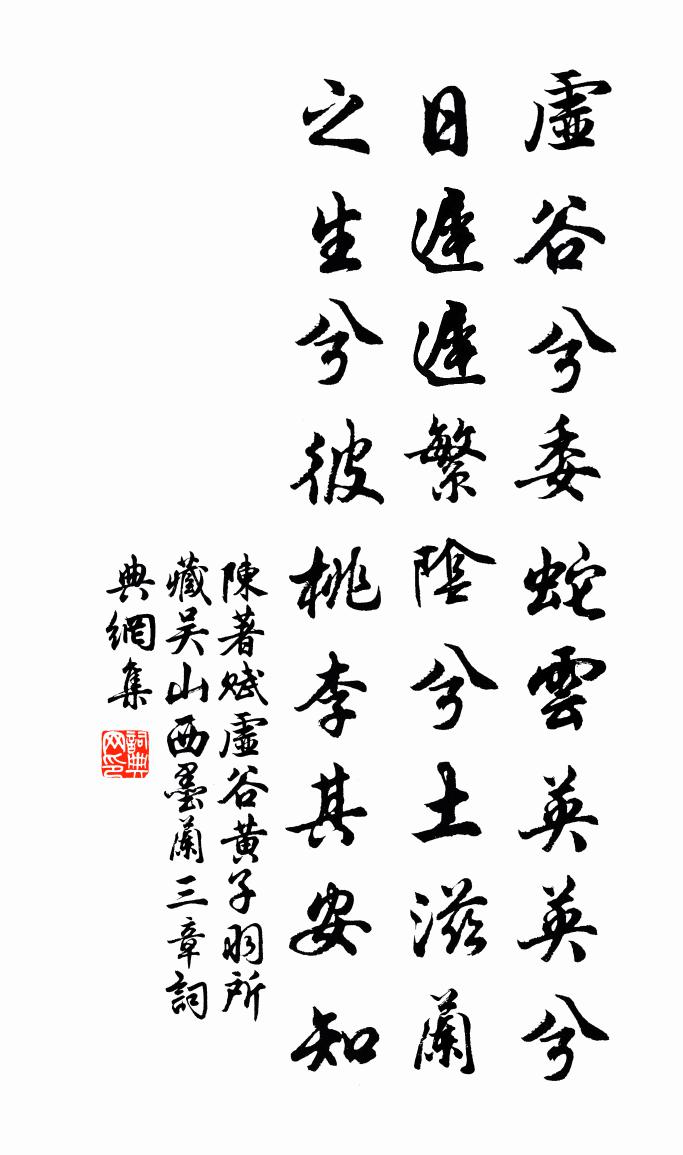 虛谷兮委蛇雲英英兮
日遲遲繁陰兮土滋蘭
之生兮彼桃李其安知
陳著賦虛谷黄子羽所
藏吴山西墨蘭三章詞
典網集
詞典
网印